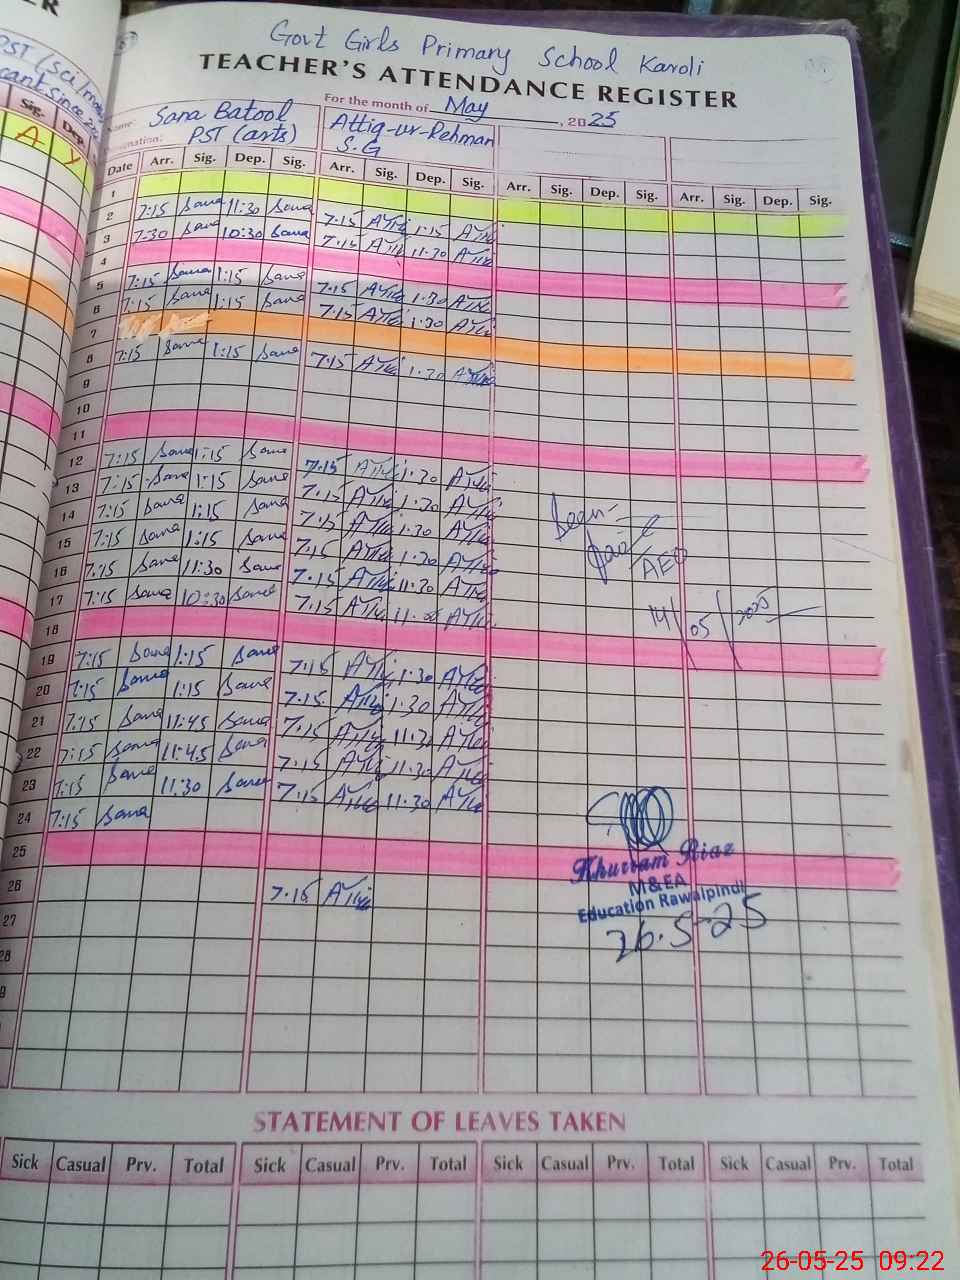 Govt Girls Primary School Karoli
TEACHER'S ATTENDANCE REGISTER
For the month of May, 2025
Name: Sana Batool Attiq-ur-Rehman
PST (arts) S.G
Date Arr. Sig. Dep. Sig. Arr. Sig. Dep. Sig. Arr. Sig. Dep. Sig. Arr. Sig. Dep. Sig.
1
2 7:15 Sana 11:30 Sana 7:15 Attiq 1:15 Attiq
3 7:30 Sana 10:30 Sana 7:15 Attiq 11:30 Attiq
4
5 7:15 Sana 1:15 Sana 7:15 Attiq 1:30 Attiq
6 7:15 Sana 1:15 Sana 7:15 Attiq 1:30 Attiq
7
8 7:15 Sana 1:15 Sana 7:15 Attiq 1:30 Attiq
9
10
11
12 7:15 Sana 1:15 Sana 7:15 Attiq 1:30 Attiq
13 7:15 Sana 1:15 Sana 7:15 Attiq 1:30 Attiq
14 7:15 Sana 1:15 Sana 7:15 Attiq 1:30 Attiq
15 7:15 Sana 1:15 Sana 7:15 Attiq 1:30 Attiq
16 7:15 Sana 11:30 Sana 7:15 Attiq 11:30 Attiq
17 7:15 Sana 10:30 Sana 7:15 Attiq Attiq
18
19 7:15 Sana 1:15 Sana 7:15 Attiq 1:30 Attiq
20 7:15 Sana 1:15 Sana 7:15 Attiq 1:30 Attiq
21 7:15 Sana 11:45 Sana 7:15 Attiq 11:30 Attiq
22 7:15 Sana 11:45 Sana 7:15 Attiq 11:30 Attiq
23 7:15 Sana 11:30 Sana 7:15 Attiq 11:30 Attiq
24 7:15 Sana
25
26 7:15 Attiq
27
28
Seen
AEO
14/05/2025
Khurram Riaz
M&EA
Education Rawalpindi
26.5-25
STATEMENT OF LEAVES TAKEN
Sick Casual Prv. Total Sick Casual Prv. Total Sick Casual Prv. Total Sick Casual Prv. Total
26-05-25 09:22